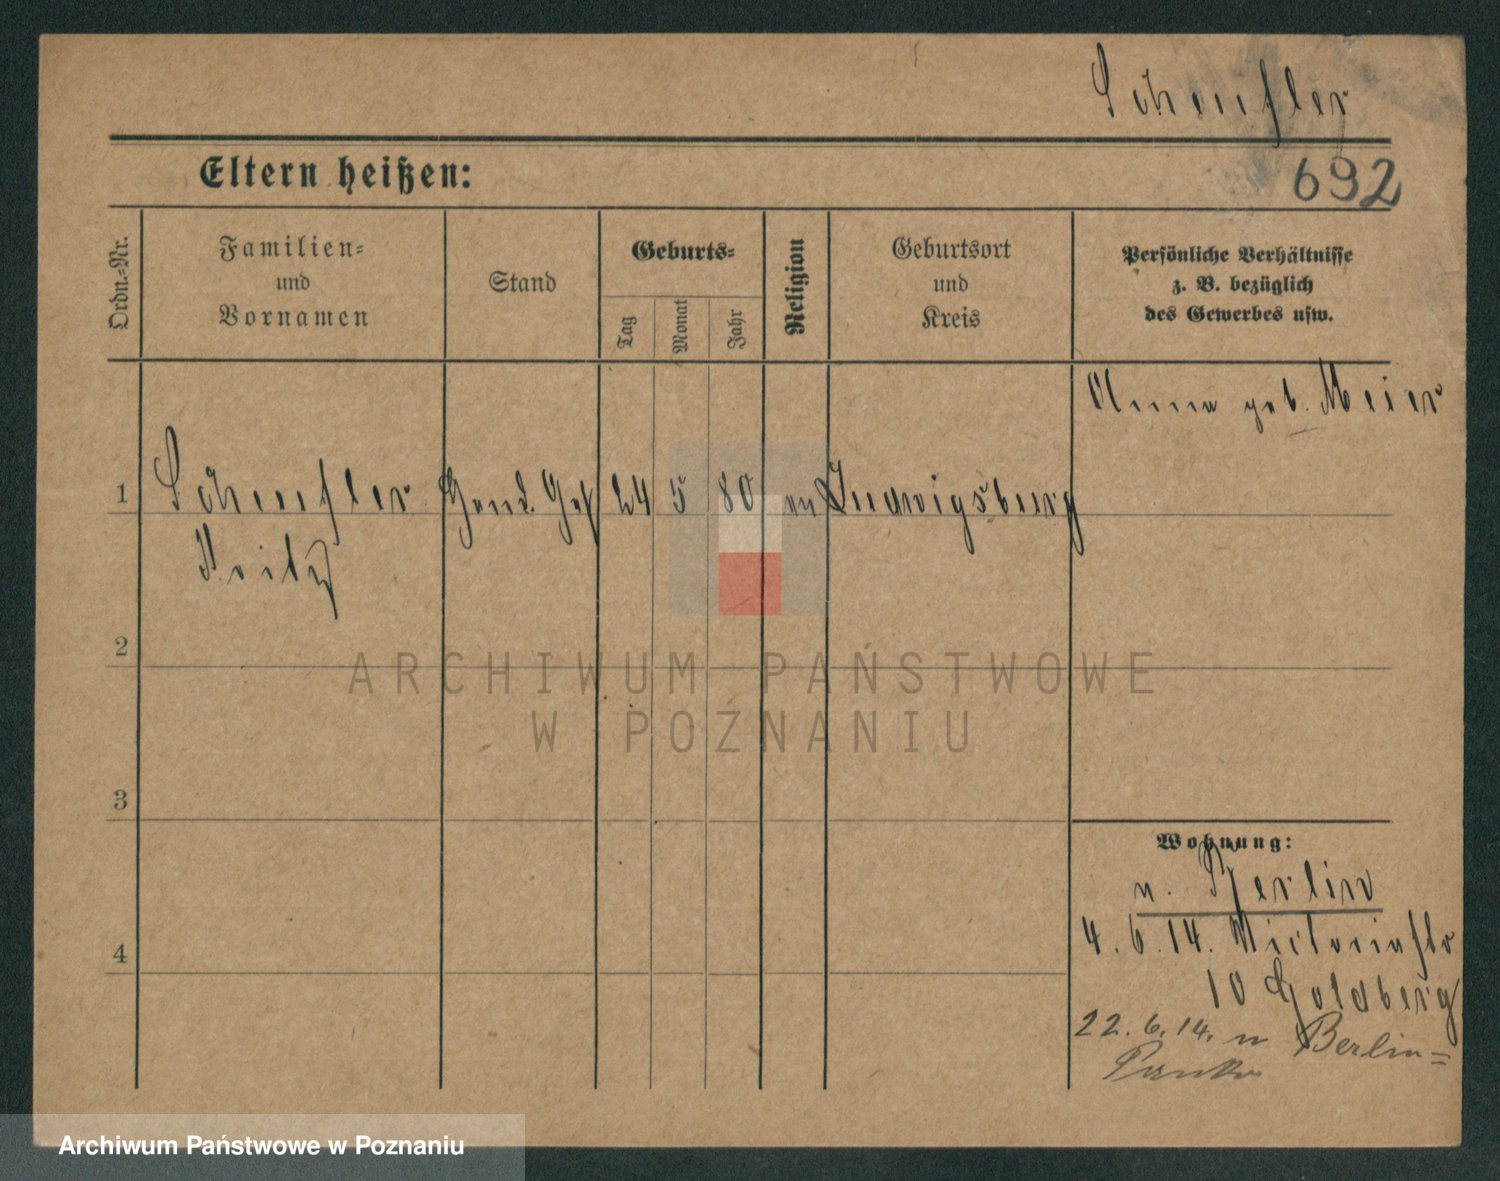 Scheufler
Eltern heißen:
692
Ordn.-Nr.
Familien-
und
Vornamen
Stand
Geburts-
Tag
Monat
Jahr
Religion
Geburtsort
und
Kreis
Persönliche Verhältnisse
z. B. bezüglich
des Gewerbes usw.
Anna geb. Meier
1 Scheufler Hand. Geh 24 5 80 ev Ludwigsburg
Fritz
2
ARCHIWUM PAŃSTWOWE
W POZNANIU
3
Wohnung:
n. Berlin
4
4.6.14. Victoriastr
10 Goldberg
22.6.14. n Berlin=
Pankow
Archiwum Państwowe w Poznaniu